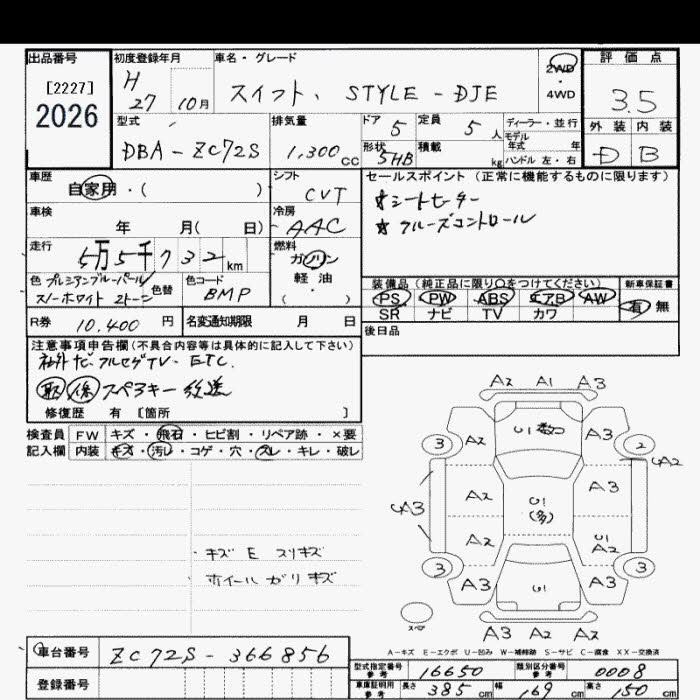 出品番号 初度登録年月 車名・グレード 2WD 評価点
[2227] H 27 10月 スイフト、STYLE-DJE 4WD 3.5
2026 型式 排気量 ドア 5 定員 5人 ディーラー・並行 外装 内装
DBA-ZC72S 1,300cc 形状 5HB 積載 kg モデル年式 年 D B
ハンドル 左・右
車歴 自家用・( ) シフト CVT セールスポイント (正常に機能するものに限ります)
車検 年 月( 日) 冷房 AAC ☆シートヒーター
☆クルーズコントロール
走行 5万5千732km 燃料 ガソリン
軽・油
( )
色 プレミアンブルーパール/ 色替 色コード BMP 装備品 (純正品に限り〇をつけてください) 新車保証書
スノーホワイト 2トーン PS PW ABS エアB AW 有 無
SR ナビ TV カワ
R券 10,400円 名変通知期限 月 日 後日品
注意事項申告欄(不具合内容等は具体的に記入して下さい)
社外ナビ・フルセグTV・ETC.
取 保 スペアキー後送
修復歴 有 [箇所 ]
検査員 FW キズ・飛石・ヒビ割・リペア跡・×要
記入欄 内装 キズ・汚レ・コゲ・穴・スレ・キレ・破レ
・キズ E スリキズ
・ホイール ガリキズ
A2 A1 A3
3 A2 U1 A3 2
A2
A2 U1 A3
(多)
A3
A2 U1
A2
3 A3 U1 A3 3
スペア A3 A2 A3
A-キズ E-エクボ U-凹み W-補修跡 S-サビ C-腐食 XX-交換済
車台番号 ZC72S-366856
登録番号
型式指定番号 参考 16650 類別区分番号 参考 0008
車庫証明用 参考 長さ 385cm 幅 169cm 高さ 150cm